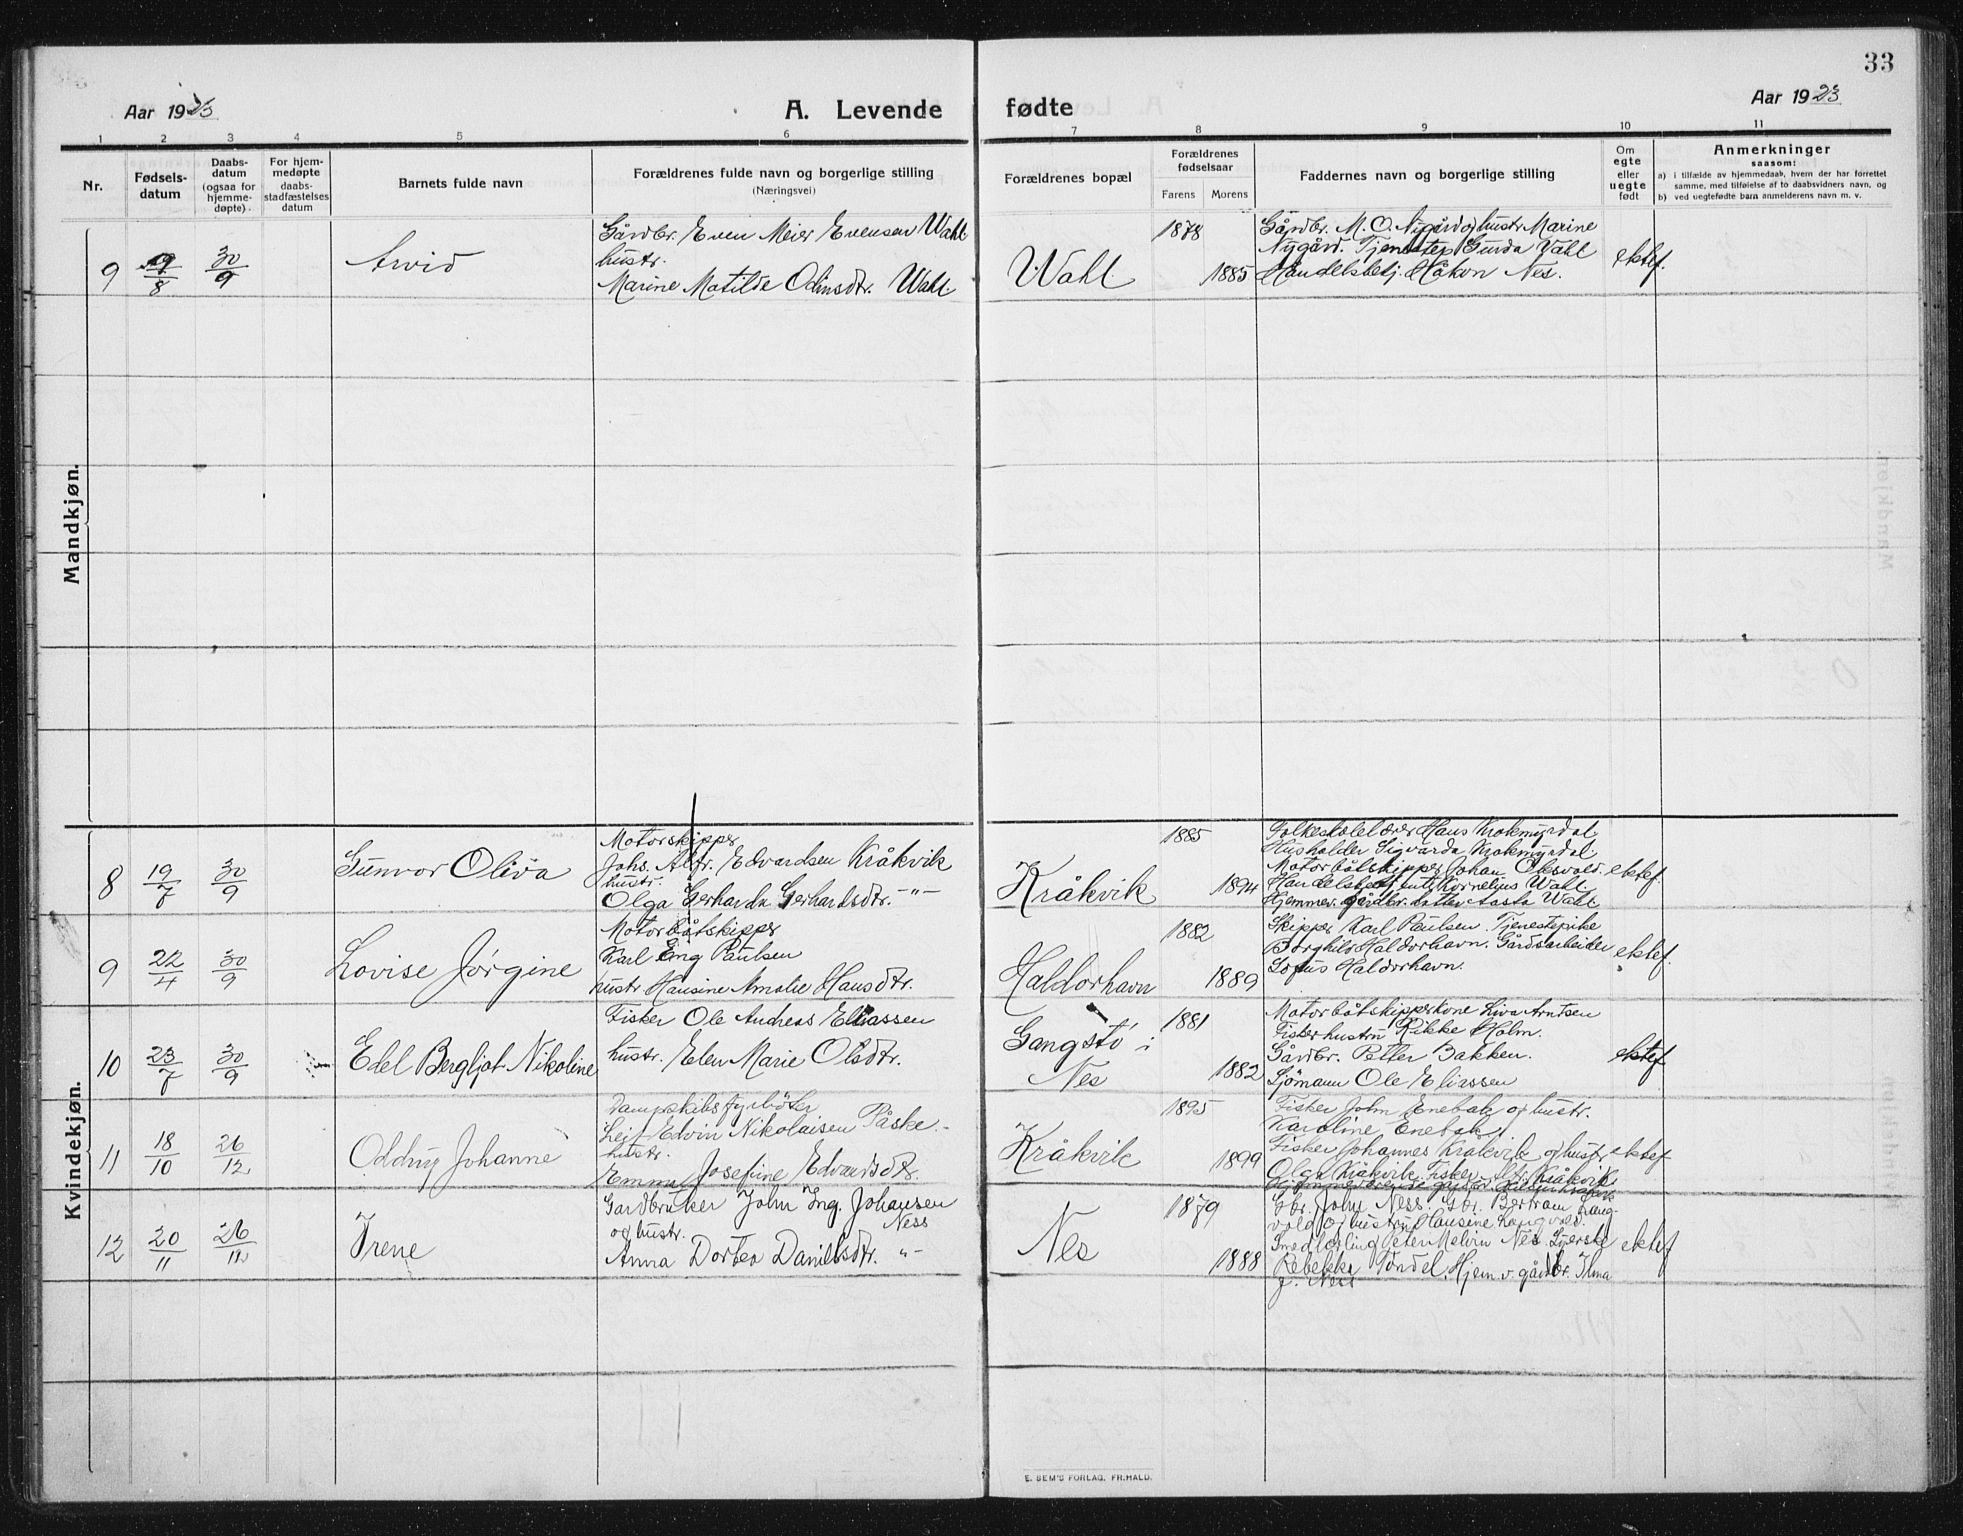 33
Aar 1923
A. Levende fødte
Aar 1923
1 2 3 4 5 6 7 8 9 10 11
Nr.
Fødsels-
datum
Daabs-
datum
(ogsaa for
hjemme-
døpte)
For hjem-
medøpte
daabs-
stadfæstelses
datum
Barnets fulde navn
Forældrenes fulde navn og borgerlige stilling
(Næringsvei)
Forældrenes bopæl
Forældrenes
fødselsaar
Farens Morens
Faddernes navn og borgerlige stilling
Om
egte
eller
uegte
født
Anmerkninger
saasom:
a) i tilfælde av hjemmedaab, hvem der har forrettet
samme, med tilføielse af to daabsvidners navn, og
b) ved uegtefødte barn anmelderens navn m. v.
Mandkjøn.
9 9/8 30/9 Arvid
Gårdbr. Even Meier Evensen Wahl
hustr.
Marine Matilde Odinsdtr. Wahl.
Wahl
1878
1885
Gårdbr. M. O. Nygård og hustr. Marine
Nygård. Tjenestep. Gunda Wahl
Handelsbetj. Håkon Nes.
ektef.
Kvindekjøn.
8 19/7 30/9 Gunvor Oliva
Motorskipper
Johs. Alfr. Edvardsen Kråkvik
hustr.
Olga Gerharda Gerhardsdtr. -"-
Kråkvik
1885
1894
Folkeskolelærer Hans Krokmyrdal
Husholder Sigvarda Krokmyrdal
Motorbåtskipper Johan Oksvold.
Handelsbetj. Kornelius Wahl.
Hjemmev. gårdbr. datter Aasta Wahl
ektef.
9 22/4 30/9 Lovise Jørgine
Motorbåtskipper
Karl Eng Paulsen
hustr. Hansine Amalie Hansdtr.
Haldorhavn
1882
1889
Skipper Karl Paulsen. Tjenestepike
Borghild Haldorhavn. Gårdsarbeider
Lofus Haldorhavn.
ektef.
10 23/7 30/9 Edel Bergljot Nikoline
Fisker Ole Andreas Eliassen
hustr. Elen Marie Olsdtr.
Gangstö i
Nes
1881
1882
Motorbåtskipperkone Liva Arntsen
Fiskerhustru Rikke Holm.
Gårdbr. Petter Bakken.
Sjömann Ole Eliassen
ektef
11 18/10 26/12 Oddny Johanne
Dampskibsfyrböter
Leif Edvin Nikolaisen Påske.
hustr.
Emma Josefine Edvardsdtr.
Kråkvik
1895
1899
Fisker John Enebak og hustr.
Karoline Enebak.
Fisker Johannes Kråkvik og hustr.
Olga Kråkvik. Fisker Alfr. Kråkvik
ektef
12 20/11 26/12 Irene
Gardbruker John Ing. Johansen
Ness
og hustr.
Anna Dortea Danielsdtr. -"-
Nes
1879
1888
Gbr. John Ness. Gbr. Bertram Lang-
vold og hustru Hansine Langvold.
Smedlærling Peter Melvin Nes. Syerske
Rebekka Töndel. Hjem. v. gårdbr. Ilma
J. Ness
ektef
E. SEM'S FORLAG, FR.HALD.